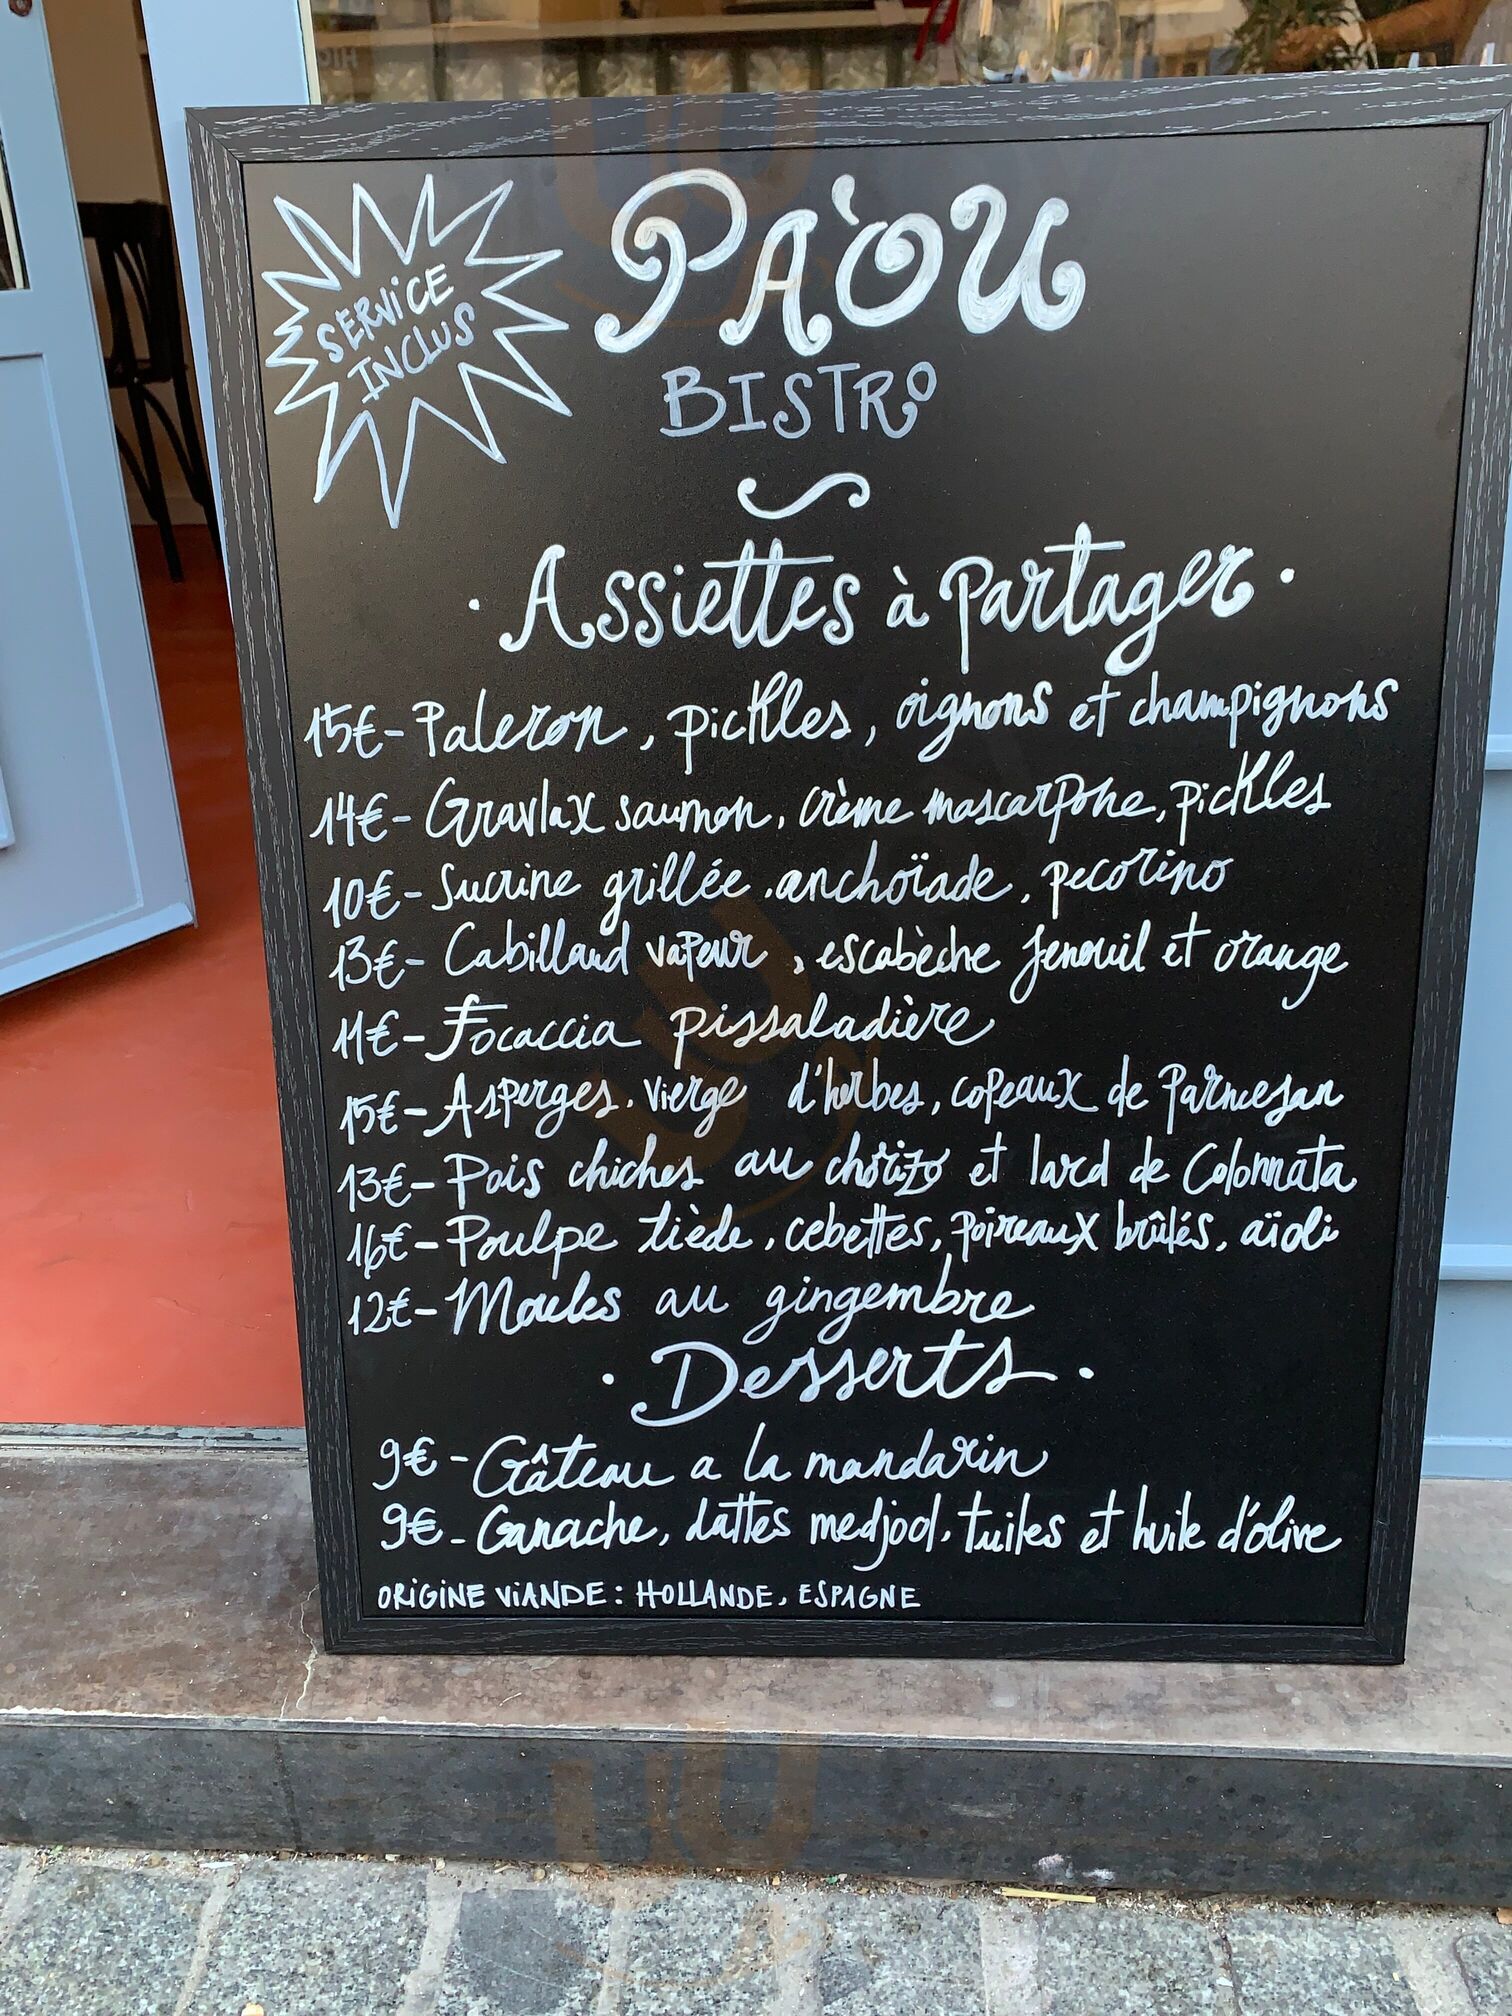 SERVICE
INCLUS
PA'OU
BISTRO
· Assiettes à partager ·
15€ - Paleron, pickles, oignons et champignons
14€ - Gravlax saumon, crème mascarpone, pickles
10€ - Sucrine grillée, anchoïade, pecorino
13€ - Cabillaud vapeur, escabèche fenouil et orange
11€ - Focaccia pissaladière
15€ - Asperges, vierge d'herbes, copeaux de Parmesan
13€ - Pois chiches au chorizo et lard de Colonnata
16€ - Poulpe tiède, cebettes, poireaux brûlés, aïoli
12€ - Moules au gingembre
· Desserts ·
9€ - Gâteau a la mandarin
9€ - Ganache, dattes medjool, tuiles et huile d'olive
ORIGINE VIANDE : HOLLANDE, ESPAGNE